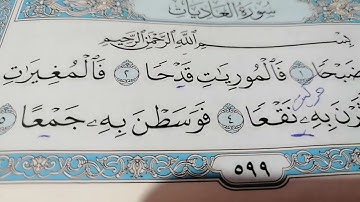 سورة العاديات
بِسْمِ اللَّهِ الرَّحْمَٰنِ الرَّحِيمِ
ضَبْحًا ١ فَالْمُورِيَاتِ قَدْحًا ٢ فَالْمُغِيرَاتِ
رْنَ بِهِۦ نَقْعًا ٤ فَوَسَطْنَ بِهِۦ جَمْعًا ٥
٥٩٩